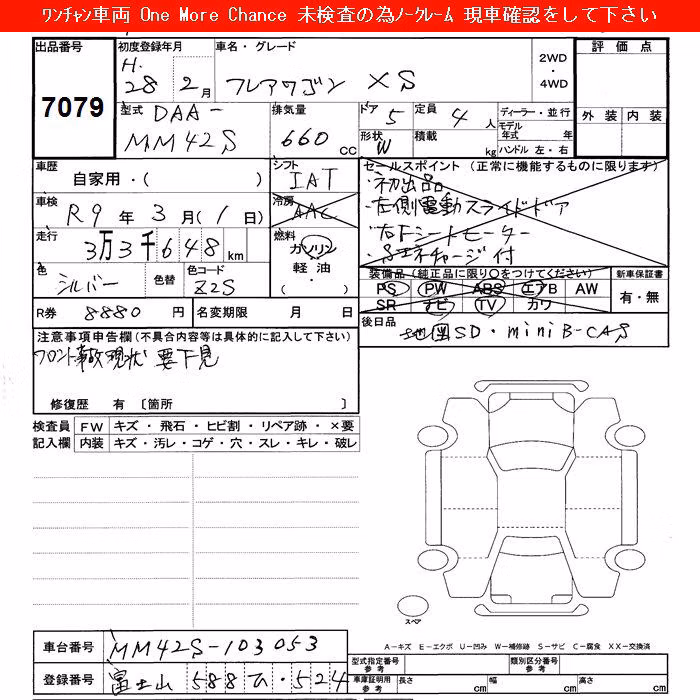 ﾜﾝﾁｬﾝ車両 One More Chance 未検査の為ﾉｰｸﾚｰﾑ 現車確認をして下さい
出品番号 初度登録年月 車名・グレード 2WD・4WD 評価点
7079 H.28 2月 フレアワゴン XS
型式 DAA-MM42S 排気量 660CC ドア 5 定員 4人 ディーラー・並行 外装 内装
形状 W 積載 kg モデル年式 年
ハンドル 左・右
車歴 自家用・( ) シフト IAT セールスポイント (正常に機能するものに限ります)
車検 R9年3月(1日) 冷房 AAC 初出品
左側電動スライドドア
走行 3万3千648km 燃料 ガソリン 軽油・( ) シートヒーター
S-エネチャージ付
色 シルバー 色替 色コード Z2S 装備品(純正品に限り○をつけてください) 新車保証書
PS PW ABS エアB AW 有・無
SR ナビ TV カワ
R券 8880円 名変期限 月 日 後日品
地図SD・miniB-CAS
注意事項申告欄(不具合内容等は具体的に記入して下さい)
フロント事故現状 要下見
修復歴 有〔箇所 〕
検査員記入欄 FW キズ・飛石・ヒビ割・リペア跡・×要
内装 キズ・汚レ・コゲ・穴・スレ・キレ・破レ
スペア
A-キズ E-エクボ U-凹み W-補修跡 S-サビ C-腐食 XX-交換済
車台番号 MM42S-103053
型式指定番号 参考 類別区分番号 参考
登録番号 富士山 588 ひ・524
車庫証明用 参考 長さ cm 幅 cm 高さ cm